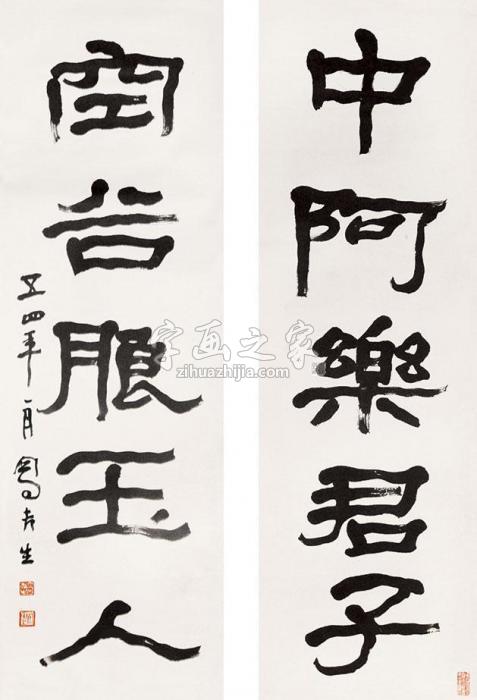 中阿樂君子
空谷服玉人
五四年
老生
字画之家
zihuazhijia.com